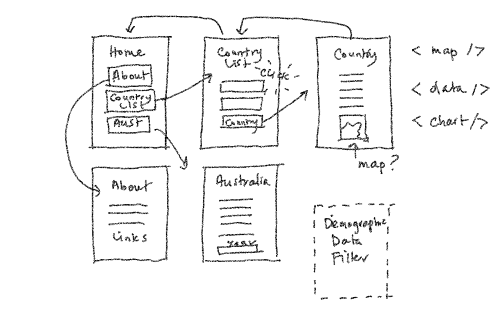 Home
About
Country
List
Aust
Country
List
CLICK
Country
Country
< map />
< data />
< chart />
map?
About
Links
Australia
Year
Demographic
Data
Filter